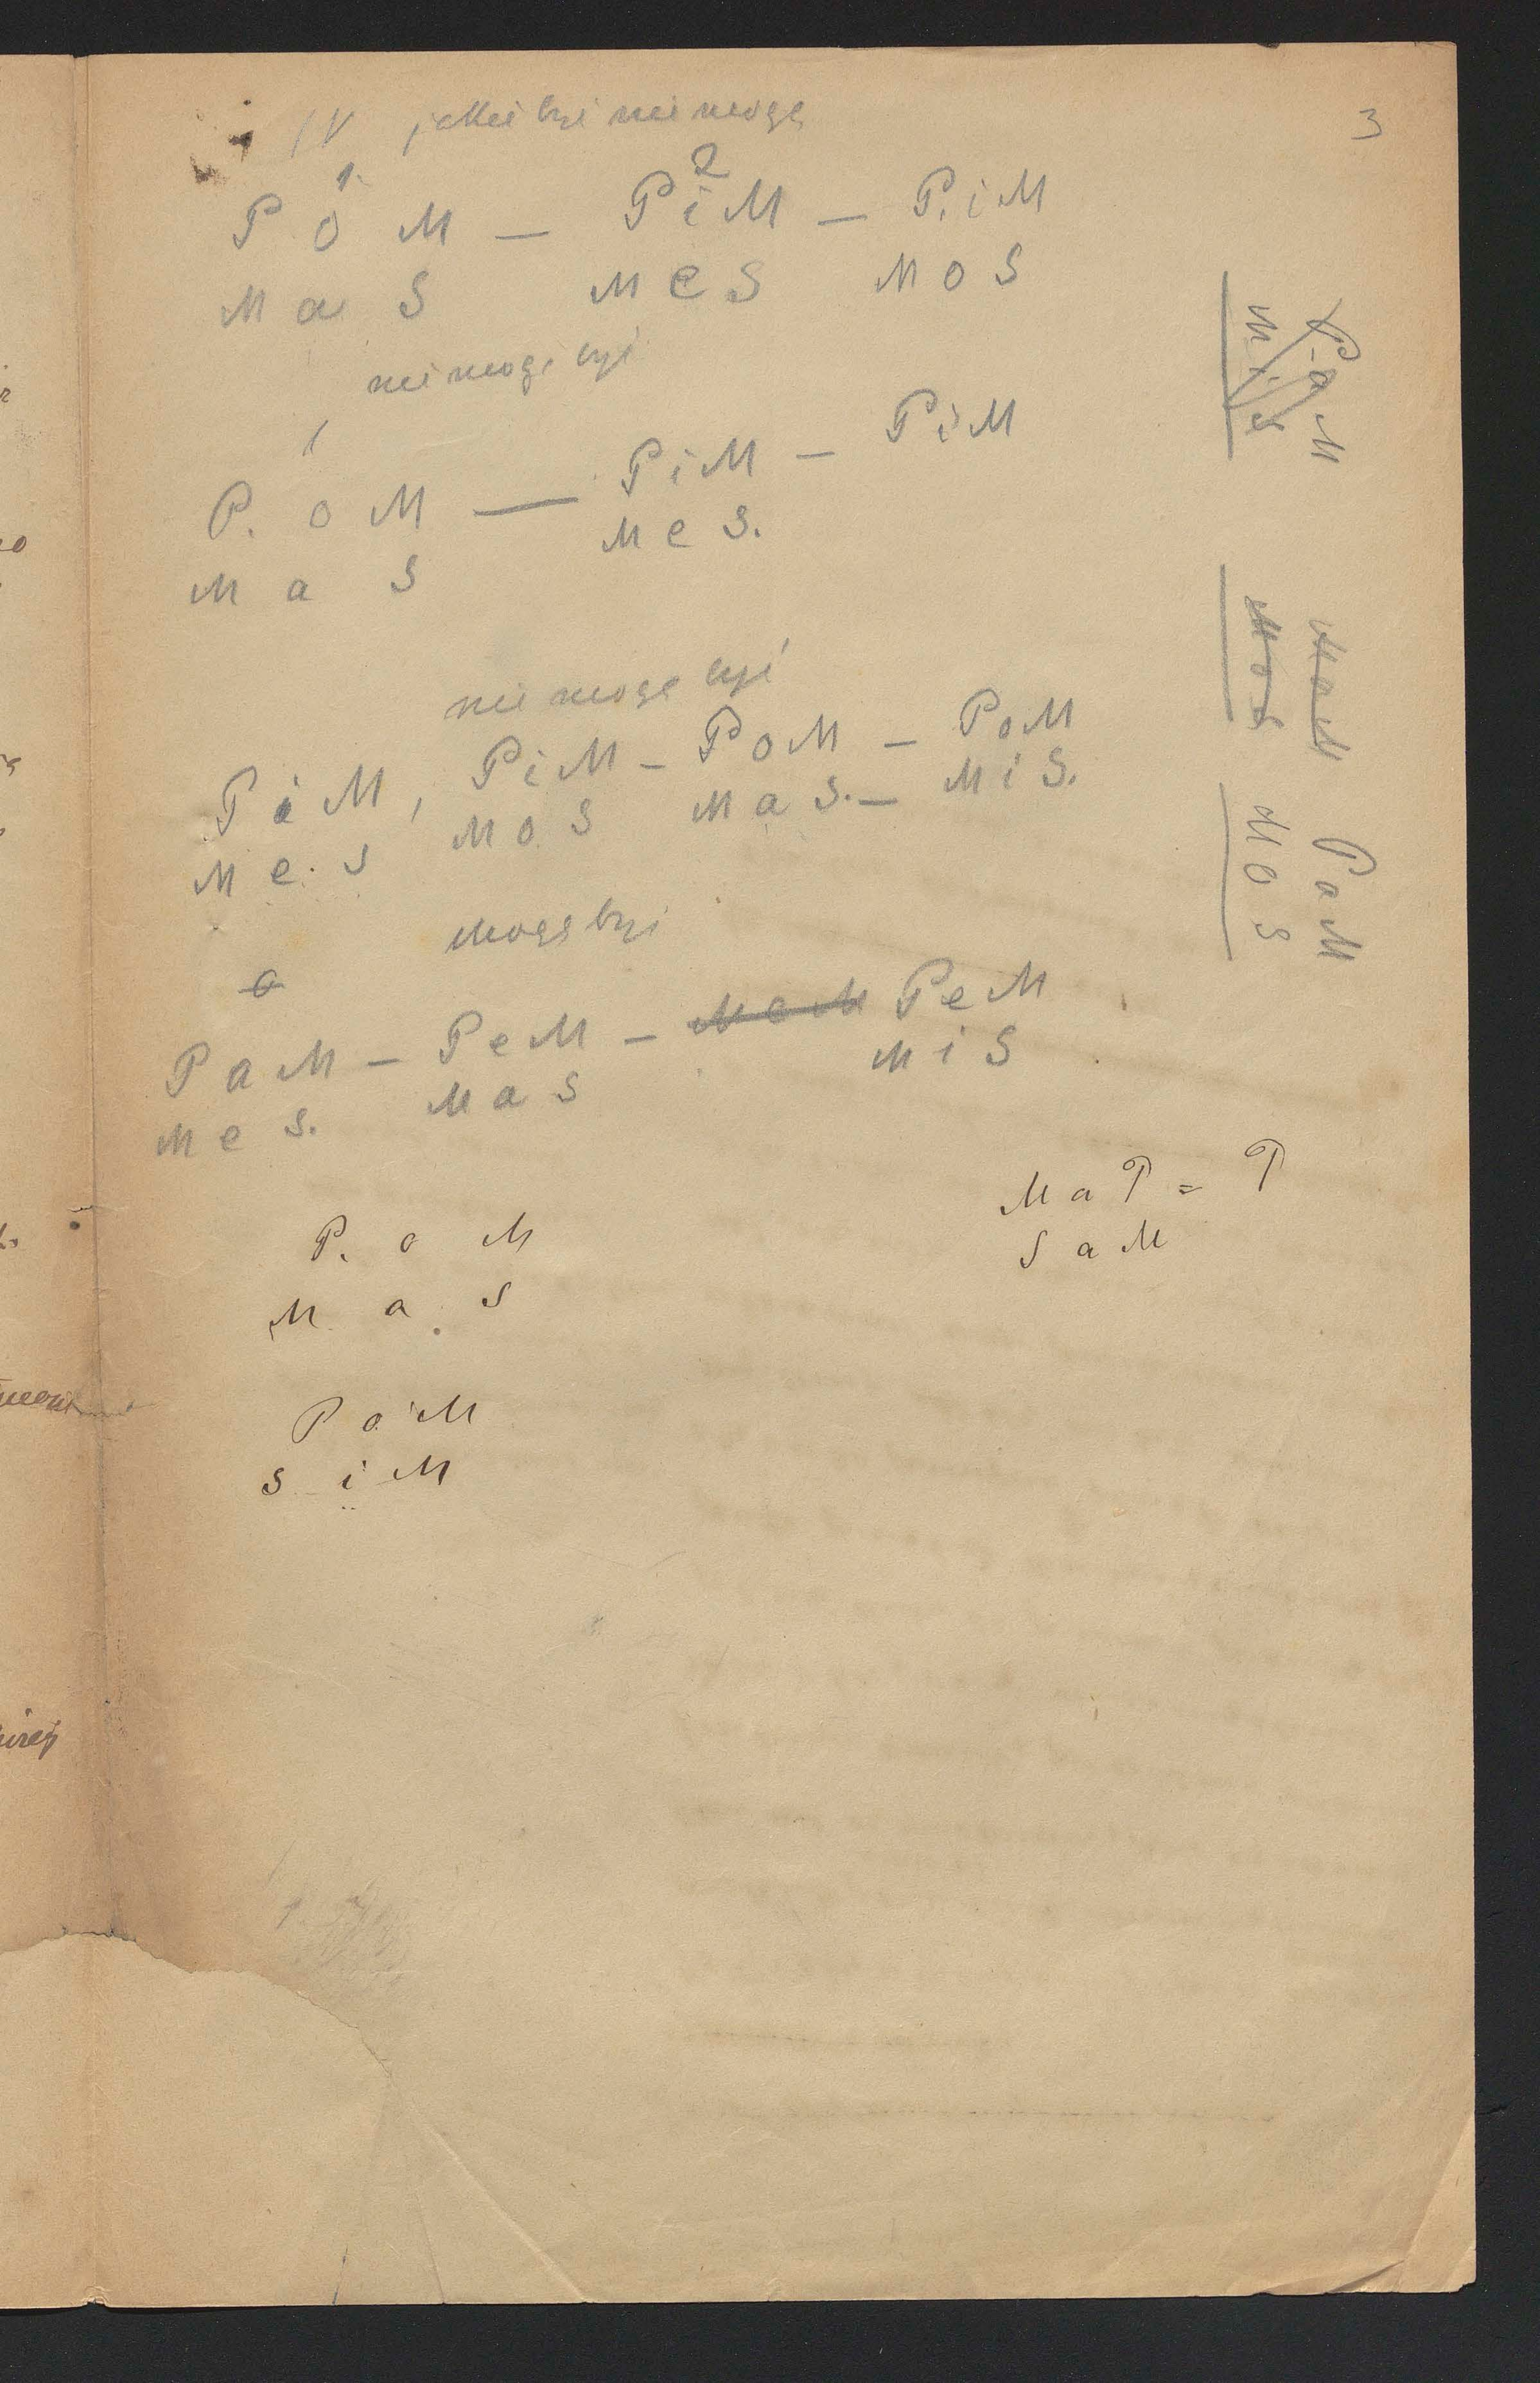 3
IV jakie być nie mogą
1 2
P o M — P i M — P. i M
M a S M e S M o S
nie mogą być
1
P. o M — P i M — P i M
M a S M e S.
nie mogą być
P i M, P i M — P o M — P o M
M e. S M o S M a S. — M i S.
Mogą być
a
P a M — P e M — M e M P e M
M e S. M a S M i S
M a P = P
S a M
P. o M
M a S
P o M
S i M
P a M
M i S
M o M
M o S
P o M
M o S